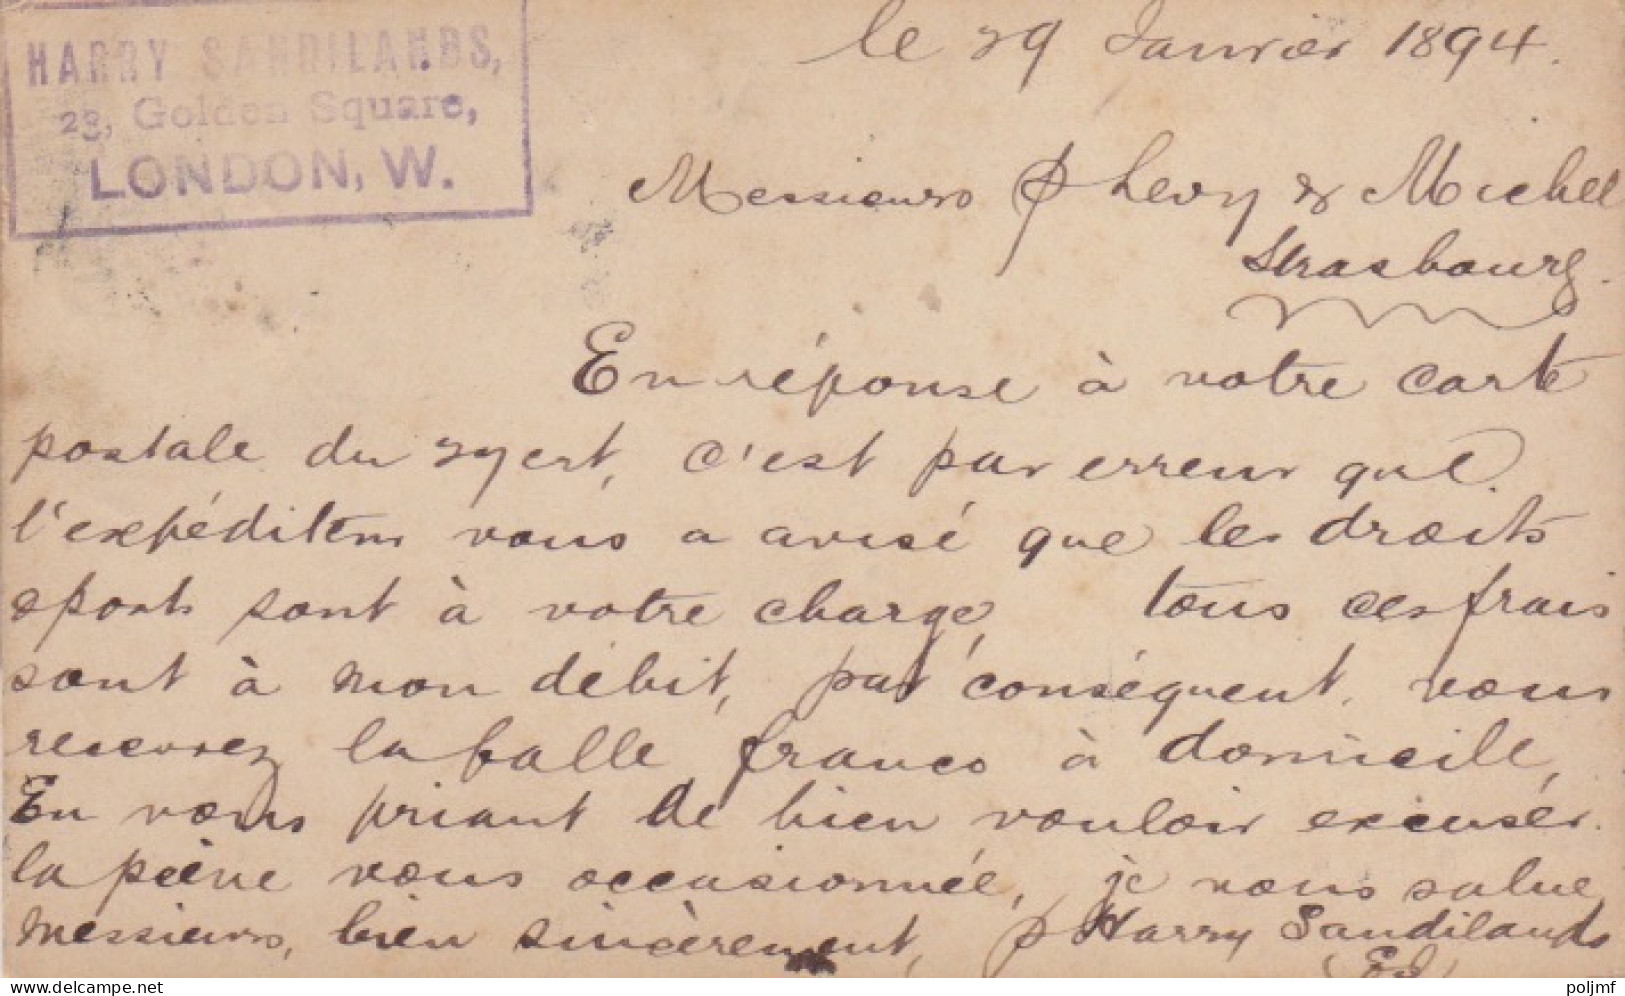 HARRY SANDILANDS,
28, Golden Square,
LONDON, W.
le 29 Janvier 1894.
Messieurs Levy & Michel
Strasbourg.
En réponse à votre carte
postale du crt, c'est par erreur que
l'expéditeur vous a avisé que les droits
& ports sont à votre charge, tous ces frais
sont à mon débit, par conséquent vous
recevrez la balle franco à domicile,
En vous priant de bien vouloir excuser
la peine vous occasionnée, je vous salue,
messieurs, bien sincèrement, p Harry Sandilands
poljmf
Delcampe.net